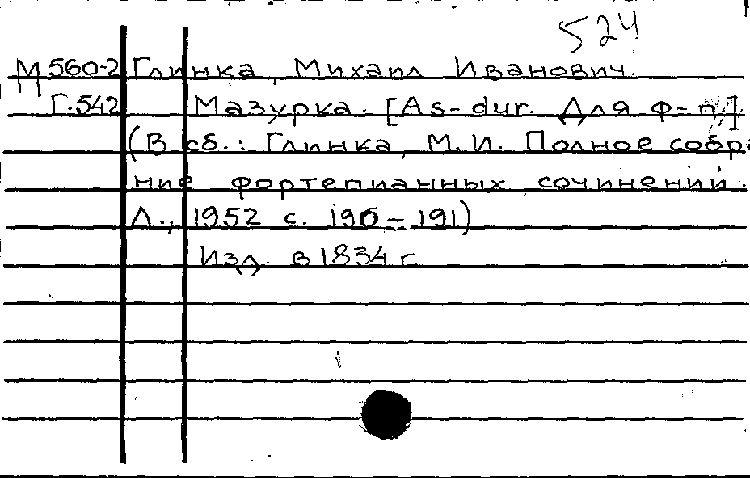 524
М560-2 Глинка, Михаил Иванович.
Г.542 Мазурка. [As-dur. Для ф-п.]
(В сб.: Глинка, М.И. Полное собра
ние фортепианных сочинений.
Л., 1952 с. 190-191)
Изд. в 1834 г.